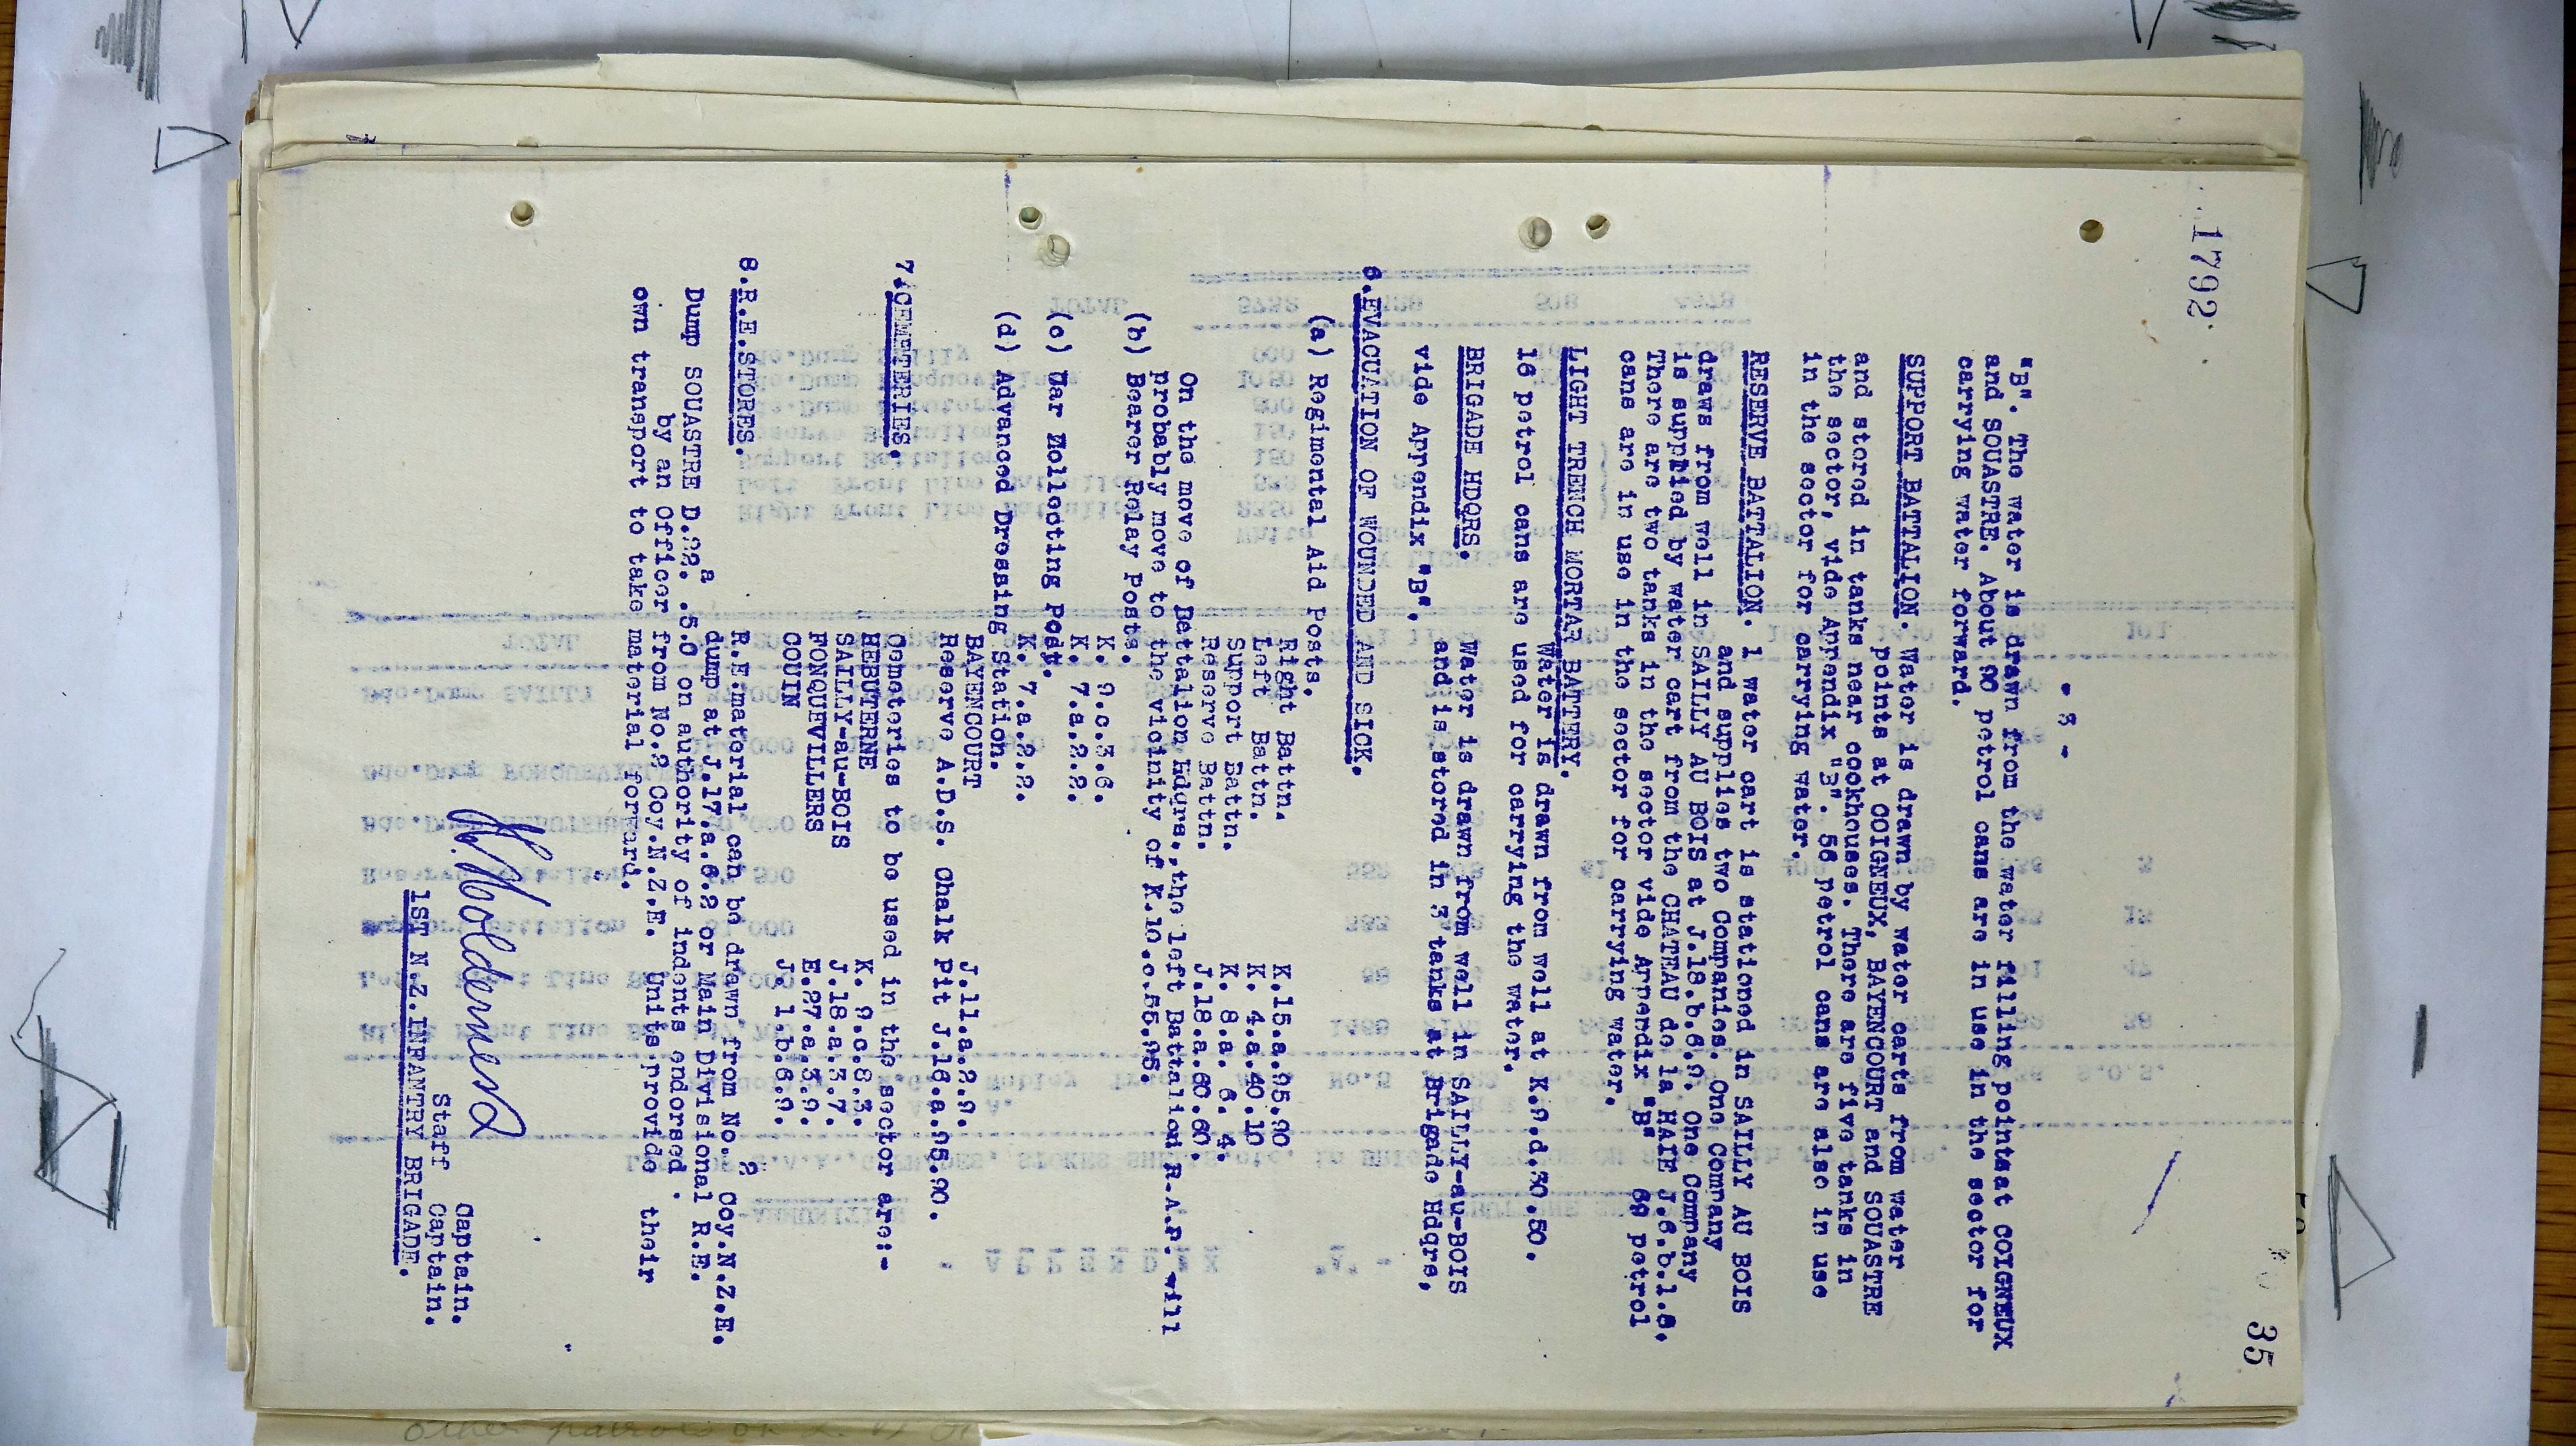 1792.
35
- 3 -
"B". The water is drawn from the water filling pointsat COIGNEUX
and SOUASTRE. About 90 petrol cans are in use in the sector for
carrying water forward.
SUPPORT BATTALION. Water is drawn by water carts from water
points at COIGNEUX, BAYENCOURT and SOUASTRE
and stored in tanks near cookhouses. There are five tanks in
the sector, vide Appendix "B". 56 petrol cans are also in use
in the sector for carrying water.
RESERVE BATTALION. 1 water cart is stationed in SAILLY AU BOIS
and supplies two Companies. One Company
draws from well in SAILLY AU BOIS at J.18.b.6.9. One Company
is supplied by water cart from the CHATEAU de la HAIE J.6.b.1.8.
There are two tanks in the sector vide Appendix "B" 69 petrol
cans are in use in the sector for carrying water.
LIGHT TRENCH MORTAR BATTERY.
Water is drawn from well at K.9.d.30.50.
16 petrol cans are used for carrying the water.
BRIGADE HDQRS. Water is drawn from well in SAILLY-au-BOIS
and is stored in 3 tanks at Brigade Hdqrs,
vide Appendix "B".
6.EVACUATION OF WOUNDED AND SICK.
(a) Regimental Aid Posts.
Right Battn. K.15.a.95.90
Left Battn. K. 4.a.40.10
Support Battn. K. 8.a. 6. 4.
Reserve Battn. J.18.a.60.60.
On the move of Battalion Hdqrs.,the left Battalion R.A.P. will
probably move to the vicinity of K.10.c.55.95.
(b) Bearer Relay Posts.
K. 9.c.3.6.
K. 7.a.2.2.
(c) Car Collecting Post.
K. 7.a.2.2.
(d) Advanced Dressing Station.
BAYENCOURT J.11.a.2.9.
Reserve A.D.S. Chalk Pit J.16.a.95.90.
7.CEMETERIES. Cemeteries to be used in the sector are:-
HEBUTERNE K. 9.c.8.3.
SAILLY-au-BOIS J.18.a.3.7.
FONQUEVILLERS E.27.a.3.9.
COUIN J. 1.b.6.9.
8.R.E.STORES. R.E.material can be drawn from No. 2 Coy.N.Z.E.
dump at J.17.a.6.2 or Main Divisional R.E.
Dump SOUASTRE D.22.a.5.0 on authority of indents endorsed
by an Officer from No.2 Coy.N.Z.E. Units provide their
own transport to take material forward.
Captain.
Staff Captain.
1ST N.Z.INFANTRY BRIGADE.